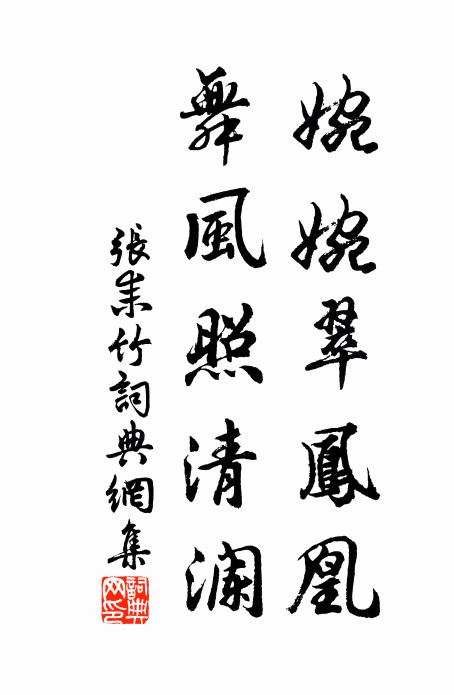 婉婉翠鳳凰
舞風照清瀾
張耒竹詞典網集
詞典网印